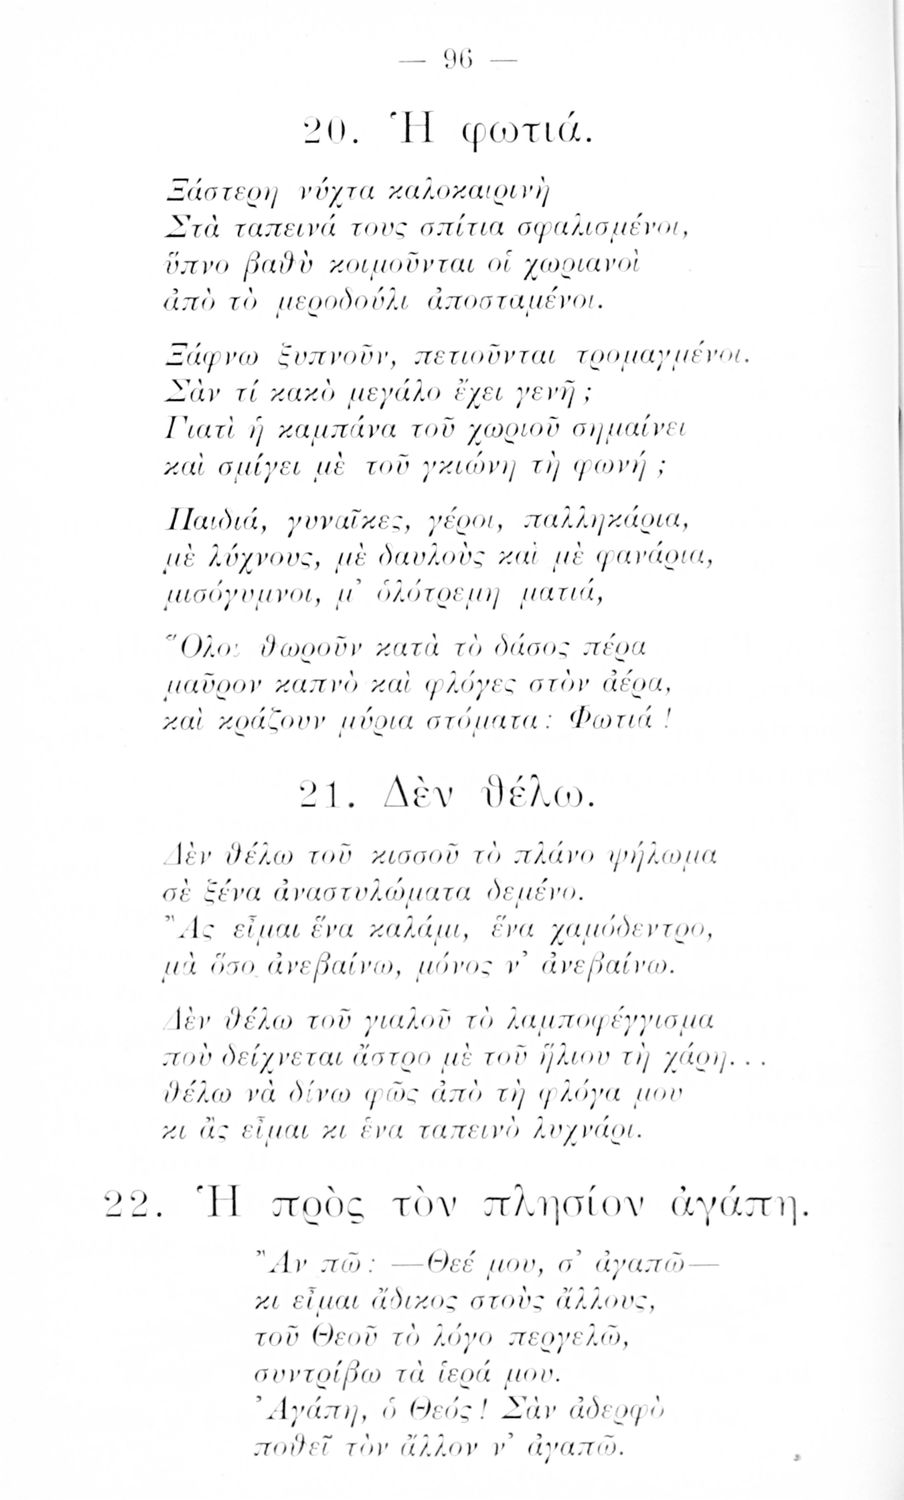 — 96 —
20. Ἡ φωτιά.
Ξάστερη νύχτα καλοκαιρινὴ
Στὰ ταπεινά τους σπίτια σφαλισμένοι,
ὕπνο βαθὺ κοιμοῦνται οἱ χωριανοὶ
ἀπὸ τὸ μεροδούλι ἀποσταμένοι.
Ξάφνω ξυπνοῦν, πετιοῦνται τρομαγμένοι.
Σὰν τί κακὸ μεγάλο ἔχει γενῆ ;
Γιατὶ ἡ καμπάνα τοῦ χωριοῦ σημαίνει
καὶ σμίγει μὲ τοῦ γκιώνη τὴ φωνή ;
Παιδιά, γυναῖκες, γέροι, παλληκάρια,
μὲ λύχνους, μὲ δαυλοὺς καὶ μὲ φανάρια,
μισόγυμνοι, μ’ ὁλότρεμη ματιά,
Ὅλοι θωροῦν κατὰ τὸ δάσος πέρα
μαῦρον καπνὸ καὶ φλόγες στὸν ἀέρα,
καὶ κράζουν μύρια στόματα : Φωτιά !
21. Δὲν θέλω.
Δὲν θέλω τοῦ κισσοῦ τὸ πλάνο ψήλωμα
σὲ ξένα ἀναστυλώματα δεμένο.
Ἂς εἶμαι ἕνα καλάμι, ἕνα χαμόδεντρο,
μὰ ὅσο ἀνεβαίνω, μόνος ν’ ἀνεβαίνω.
Δὲν θέλω τοῦ γιαλοῦ τὸ λαμποφέγγισμα
ποὺ δείχνεται ἄστρο μὲ τοῦ ἥλιου τὴ χάρη...
θέλω νὰ δίνω φῶς ἀπὸ τὴ φλόγα μου
κι ἂς εἶμαι κι ἕνα ταπεινὸ λυχνάρι.
22. Ἡ πρὸς τὸν πλησίον ἀγάπη.
Ἂν πῶ : —Θεέ μου, σ’ ἀγαπῶ—
κι εἶμαι ἄδικος στοὺς ἄλλους,
τοῦ Θεοῦ τὸ λόγο περγελῶ,
συντρίβω τὰ ἱερά μου.
Ἀγάπη, ὁ Θεός ! Σὰν ἀδερφὸ
ποθεῖ τὸν ἄλλον ν’ ἀγαπῶ.